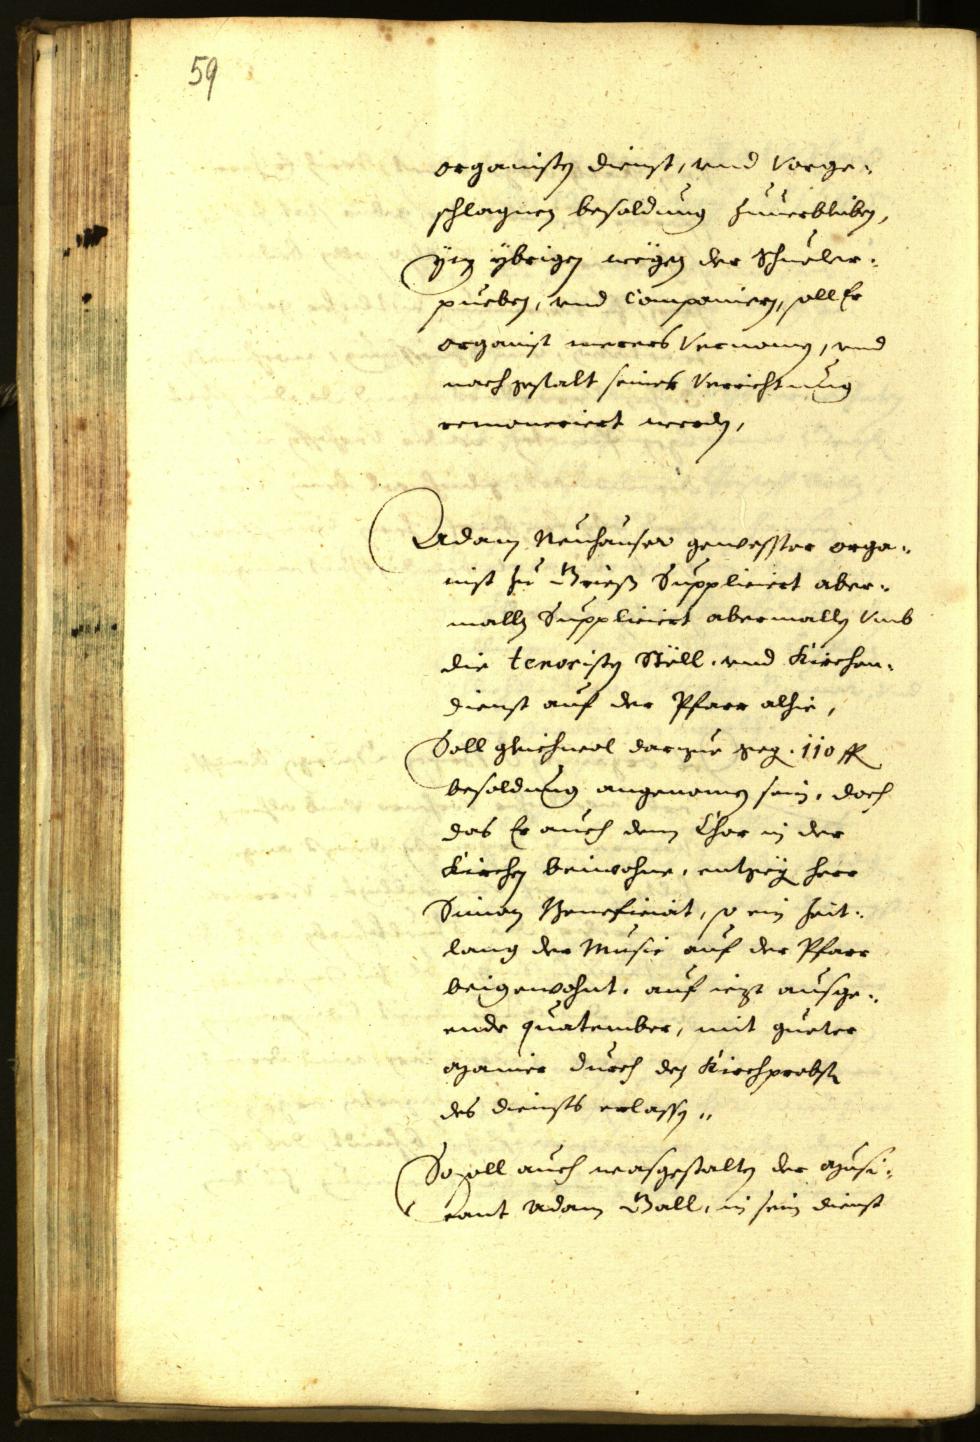 59
organisten dienst, vnd Vorge-
schlagnen besoldung zuuerbleiben,
ym ybrigen wegen der Schueler-
pueben, vnd Companieren, soll Er
organist merers Vernomen, vnd
nach gestalt seiner Verrichtung
remoneriert werden,
Adam Neuhauser gewesster orga-
nist zu Briexß Suppliciert aber-
malln Suppliciert abermalln vmb
die tenoristen Stell, vnd Kirchen-
dienst auf der Pfarr alhie,
Soll gleichwol darzue geg. 110 fl
besoldung angenomen sein, doch
das Er auch dem Chor in der
Kirchen beiwohne, entgeg herr
Simon Beneficiat, so ein Zeit-
lang der Music auf der Pfarr
beigewohnt, auf iezt ausge-
ende quatember, mit gueter
manier durch den Kirchprobst
des diensts erlassen,,
So soll auch masgestalten der Musi-
cant Adam Ball, in sein dienst